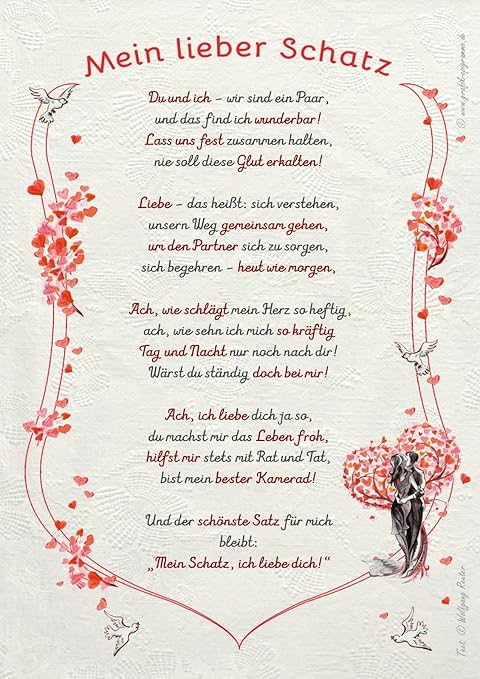 Mein lieber Schatz
Du und ich – wir sind ein Paar,
und das find ich wunderbar!
Lass uns fest zusammen halten,
nie soll diese Glut erkalten!
Liebe – das heißt: sich verstehen,
unsern Weg gemeinsam gehen,
um den Partner sich zu sorgen,
sich begehren – heut wie morgen,
Ach, wie schlägt mein Herz so heftig,
ach, wie sehn ich mich so kräftig
Tag und Nacht nur noch nach dir!
Wärst du ständig doch bei mir!
Ach, ich liebe dich ja so,
du machst mir das Leben froh,
hilfst mir stets mit Rat und Tat,
bist mein bester Kamerad!
Und der schönste Satz für mich
bleibt:
„Mein Schatz, ich liebe dich!“
Text © Wolfgang Reuter